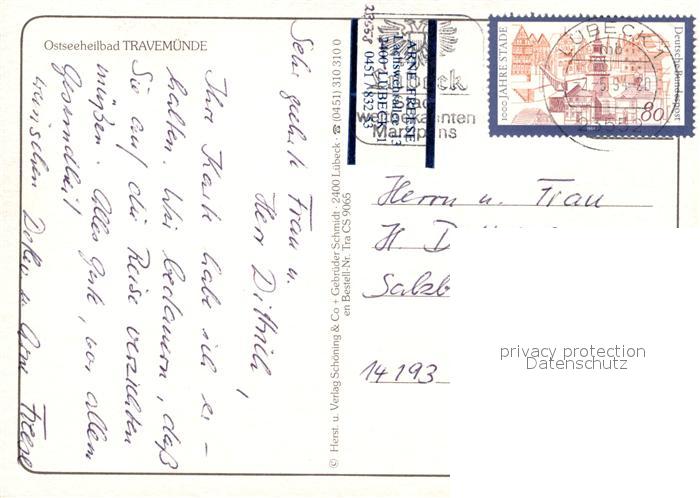 Ostseeheilbad TRAVEMÜNDE
Sehr geehrte Frau u.
Herr Dittrich,
Ihre Karte habe ich er-
halten. Wir bedauern, daß
Sie auf die Reise verzichten
müßen. Alles Gute, vor allem
Gesundheit
wünschen Arne Freese
© Herst. u. Verlag Schöning & Co + Gebrüder Schmidt · 2400 Lübeck · ☎ (0451) 310 310 0
en Bestell-Nr. Tra CS 9065
23558
ARNE FREESE
2400 LÜBECK 1
0451 / 83
beck
weltbekannten
Marzipans
1000 JAHRE STADE
Deutsche Bundespost
80
LÜBECK
23552
Herrn u. Frau
H D
Salzb
14193
privacy protection
Datenschutz